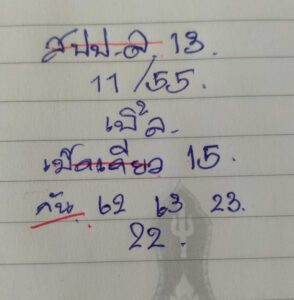 สปป.ล. 13.
11/55.
เบิ้ล.
เม็ดเดียว 15.
กัน. 62 63 23.
22.